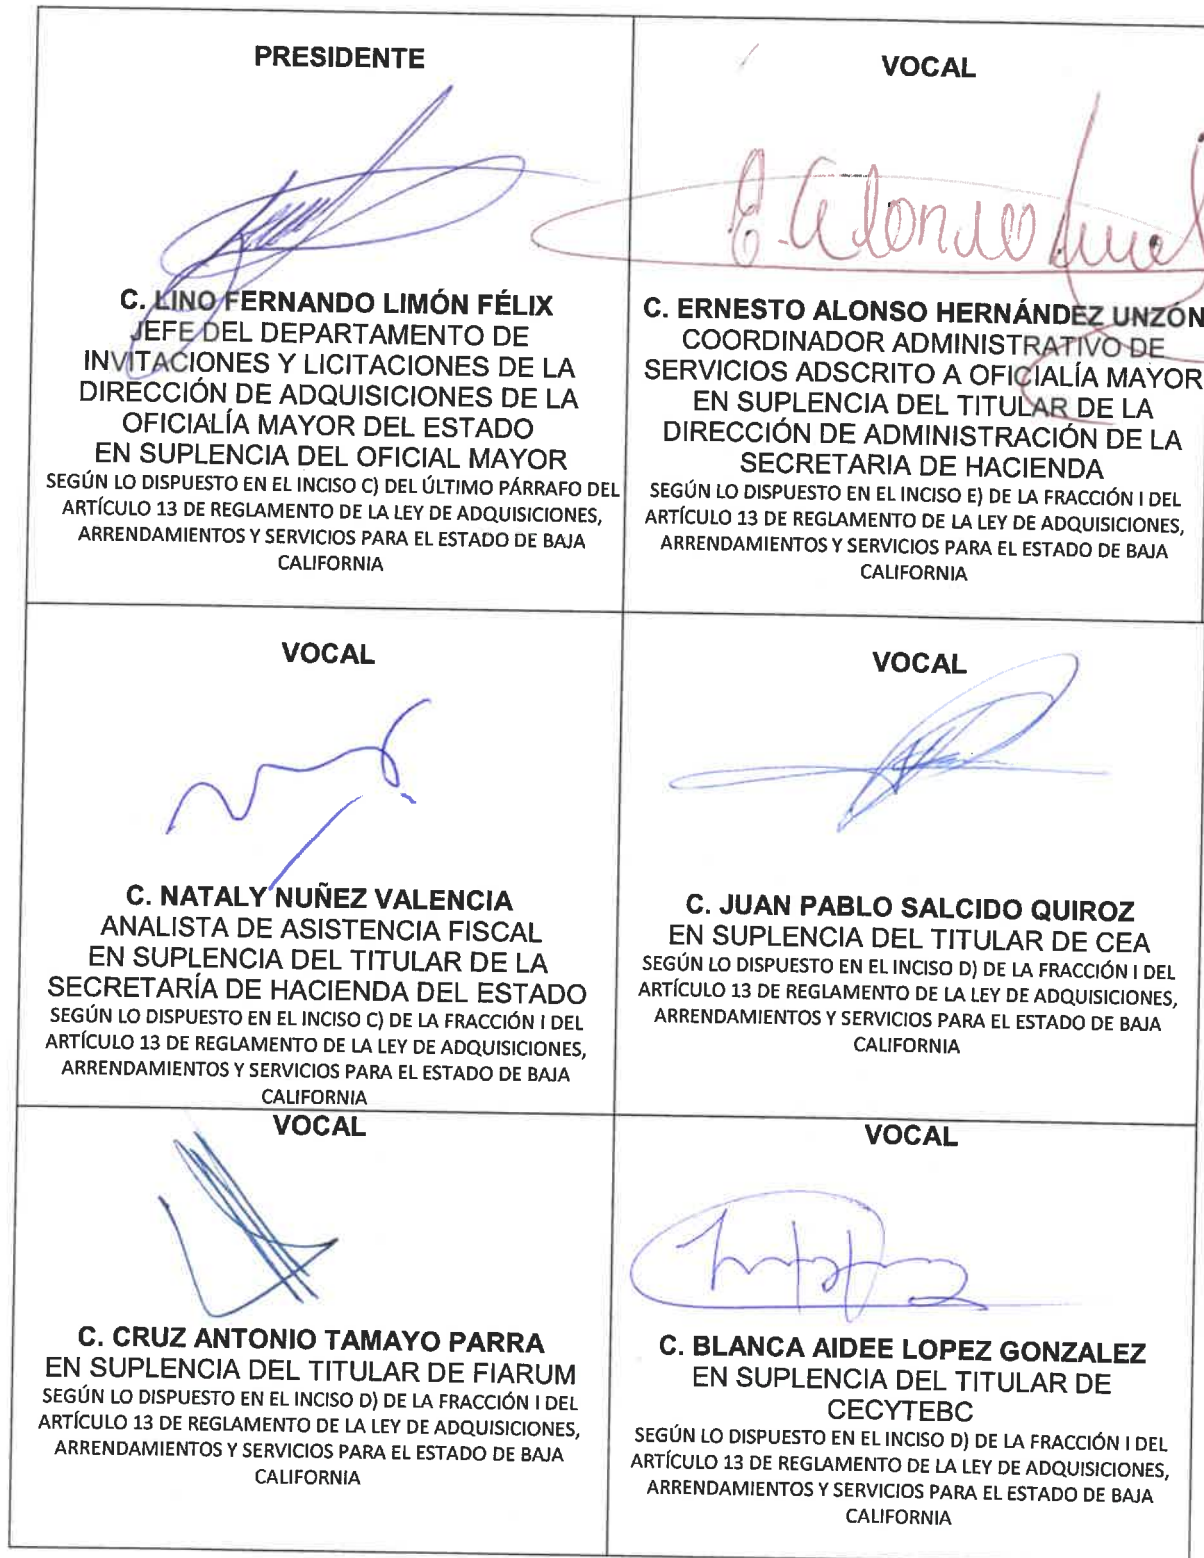 PRESIDENTE
C. LINO FERNANDO LIMÓN FÉLIX
JEFE DEL DEPARTAMENTO DE
INVITACIONES Y LICITACIONES DE LA
DIRECCIÓN DE ADQUISICIONES DE LA
OFICIALÍA MAYOR DEL ESTADO
EN SUPLENCIA DEL OFICIAL MAYOR
SEGÚN LO DISPUESTO EN EL INCISO C) DEL ÚLTIMO PÁRRAFO DEL
ARTÍCULO 13 DE REGLAMENTO DE LA LEY DE ADQUISICIONES,
ARRENDAMIENTOS Y SERVICIOS PARA EL ESTADO DE BAJA
CALIFORNIA
VOCAL
E. Alonso
C. ERNESTO ALONSO HERNÁNDEZ UNZÓN
COORDINADOR ADMINISTRATIVO DE
SERVICIOS ADSCRITO A OFICIALÍA MAYOR
EN SUPLENCIA DEL TITULAR DE LA
DIRECCIÓN DE ADMINISTRACIÓN DE LA
SECRETARIA DE HACIENDA
SEGÚN LO DISPUESTO EN EL INCISO E) DE LA FRACCIÓN I DEL
ARTÍCULO 13 DE REGLAMENTO DE LA LEY DE ADQUISICIONES,
ARRENDAMIENTOS Y SERVICIOS PARA EL ESTADO DE BAJA
CALIFORNIA
VOCAL
C. NATALY NUÑEZ VALENCIA
ANALISTA DE ASISTENCIA FISCAL
EN SUPLENCIA DEL TITULAR DE LA
SECRETARÍA DE HACIENDA DEL ESTADO
SEGÚN LO DISPUESTO EN EL INCISO C) DE LA FRACCIÓN I DEL
ARTÍCULO 13 DE REGLAMENTO DE LA LEY DE ADQUISICIONES,
ARRENDAMIENTOS Y SERVICIOS PARA EL ESTADO DE BAJA
CALIFORNIA
VOCAL
C. JUAN PABLO SALCIDO QUIROZ
EN SUPLENCIA DEL TITULAR DE CEA
SEGÚN LO DISPUESTO EN EL INCISO D) DE LA FRACCIÓN I DEL
ARTÍCULO 13 DE REGLAMENTO DE LA LEY DE ADQUISICIONES,
ARRENDAMIENTOS Y SERVICIOS PARA EL ESTADO DE BAJA
CALIFORNIA
VOCAL
C. CRUZ ANTONIO TAMAYO PARRA
EN SUPLENCIA DEL TITULAR DE FIARUM
SEGÚN LO DISPUESTO EN EL INCISO D) DE LA FRACCIÓN I DEL
ARTÍCULO 13 DE REGLAMENTO DE LA LEY DE ADQUISICIONES,
ARRENDAMIENTOS Y SERVICIOS PARA EL ESTADO DE BAJA
CALIFORNIA
VOCAL
C. BLANCA AIDEE LOPEZ GONZALEZ
EN SUPLENCIA DEL TITULAR DE
CECYTEBC
SEGÚN LO DISPUESTO EN EL INCISO D) DE LA FRACCIÓN I DEL
ARTÍCULO 13 DE REGLAMENTO DE LA LEY DE ADQUISICIONES,
ARRENDAMIENTOS Y SERVICIOS PARA EL ESTADO DE BAJA
CALIFORNIA